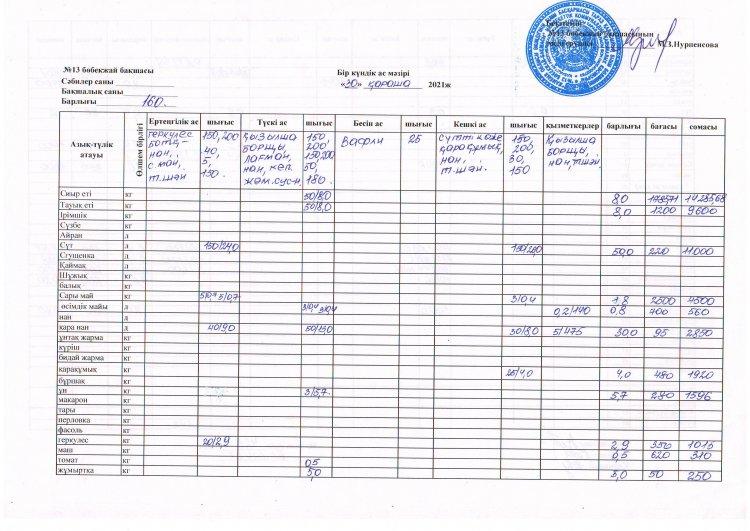 Бекітемін:
№13 бөбекжай бақшасының
меңгерушісі М.З.Нурпенсова
№13 бөбекжай бақшасы
Сәбилер саны
Бақшалық саны
Барлығы 160.
Бір күндік ас мәзірі
«30» қараша 2021ж
Азық-түлік атауы Өлшем бірлігі Ертеңгілік ас шығыс Түскі ас шығыс Бесін ас шығыс Кешкі ас шығыс қызметкерлер барлығы бағасы сомасы
геркулес 150,200 қызылша 150 вафли 25 сүтті көже 150 Қызылша
ботқа- 40, борщы, 200 қарақұмық, 200, борщы,
нан, 5, лағман, 150,200 нан, 30, нан, т.шәй
с май, 150. нан, кеп. 50, т.шәй. 150
т.шәй жем.сусын. 180.
Сиыр еті кг 50/8,0 8,0 1785,71 14285,68
Тауық еті кг 50/8,0 8,0 1200 9600
Ірімшік кг
Сүзбе кг
Айран л
Сүт л 150/24,0 150/26,0 50,0 220 11000
Сгушенка л
Қаймақ кг
Шұжық кг
балық кг
Сары май кг 5/0,7 3/0,4 1,8 2500 4500
өсімдік майы л 3/0,4 3/0,4 0,2/140 0,8 700 560
нан л
қара нан кг 40/9,0 50/13,0 30/8,0 5/475 30,0 95 2850
ұнтақ жарма кг
күріш кг
бидай жарма кг
қарақұмық кг 25/4,0 4,0 480 1920
бұршақ кг
ұн кг 3/5,7 5,7 280 1596
макарон кг
тары кг
перловка кг
фасоль кг
геркулес кг 20/2,9 2,9 350 1015
маш кг 0,5 620 310
томат кг 0,5
жұмыртқа кг 5,0 5,0 50 250